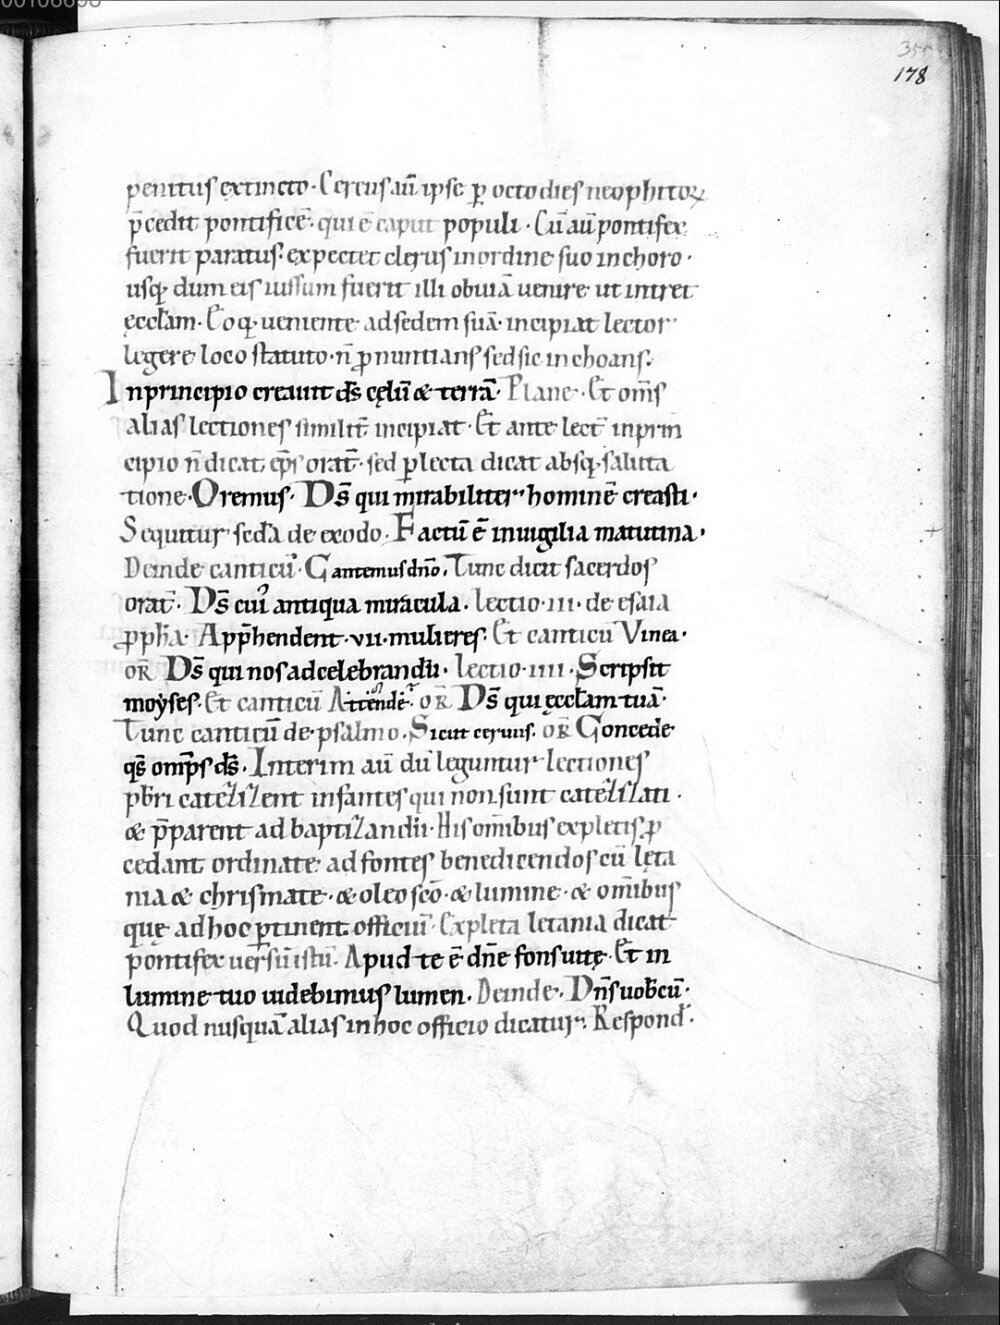 00106698
355
178
penitus extincto. Cereus aū ipse p̱ octo dies neophitoꝝ
p̄cedit pontificē. qui ē caput populi. Cū aū pontifex
fuerit paratus. expectet clerus in ordine suo in choro.
usq; dum eis iussum fuerit illi obuiā uenire ut intret
ęccl̄am. Eoq; ueniente ad sedem suā. incipiat lector
legere loco statuto. n̄ ꝓnuntians sed sic inchoans.
In principio creauit d̄s cęlū & terrā. Plane. Et om̄s
alias lectiones similit̄ incipiat. Et ante lect̄ in prin
cipio n̄ dicat, ep̄s orat̄. sed p̱lecta dicat absq; saluta
tione. Oremus. Ds̄ qui mirabiliter hominē creasti.
Sequitur sed̄a de exodo. Factū ē in uigilia matutina.
Deinde canticū. Cantemus dn̄o. Tunc dicit sacerdos
orat̄. Ds̄ cui᷒ antiqua miracula. lectio. III. de esaia
ꝓph̄a. App̄hendent. vii. mulieres. Et canticū Vinea.
or̄ Ds̄ qui nos ad celebrandū. lectio. IIII. Scripsit
moẏses. Et canticū Attende. or̄ Ds̄ qui ęccl̄am tuā.
Tunc canticū de psalmo. Sicut ceruus. or̄ Concede
qs̄ omp̄s d̄s. Interim aū dū leguntur lectiones
pb̄ri catezizent infantes qui non sunt catezizati.
& p̄parent ad baptizandū. His om̄ibus expletis. ꝓ
cedant ordinate ad fontes benedicendos cū lęta
nia & chrismate. & oleo sc̄o. & lumine. & om̄ibus
quę ad hoc p̱tinent officiū. Expleta letania dicat
pontifex uersū istū. Apud te ē dn̄e fons uitę. Et in
lumine tuo uidebimus lumen. Deinde. Dn̄s uob̄cū.
Quod nusquā alias in hoc officio dicatur. Respond̄.